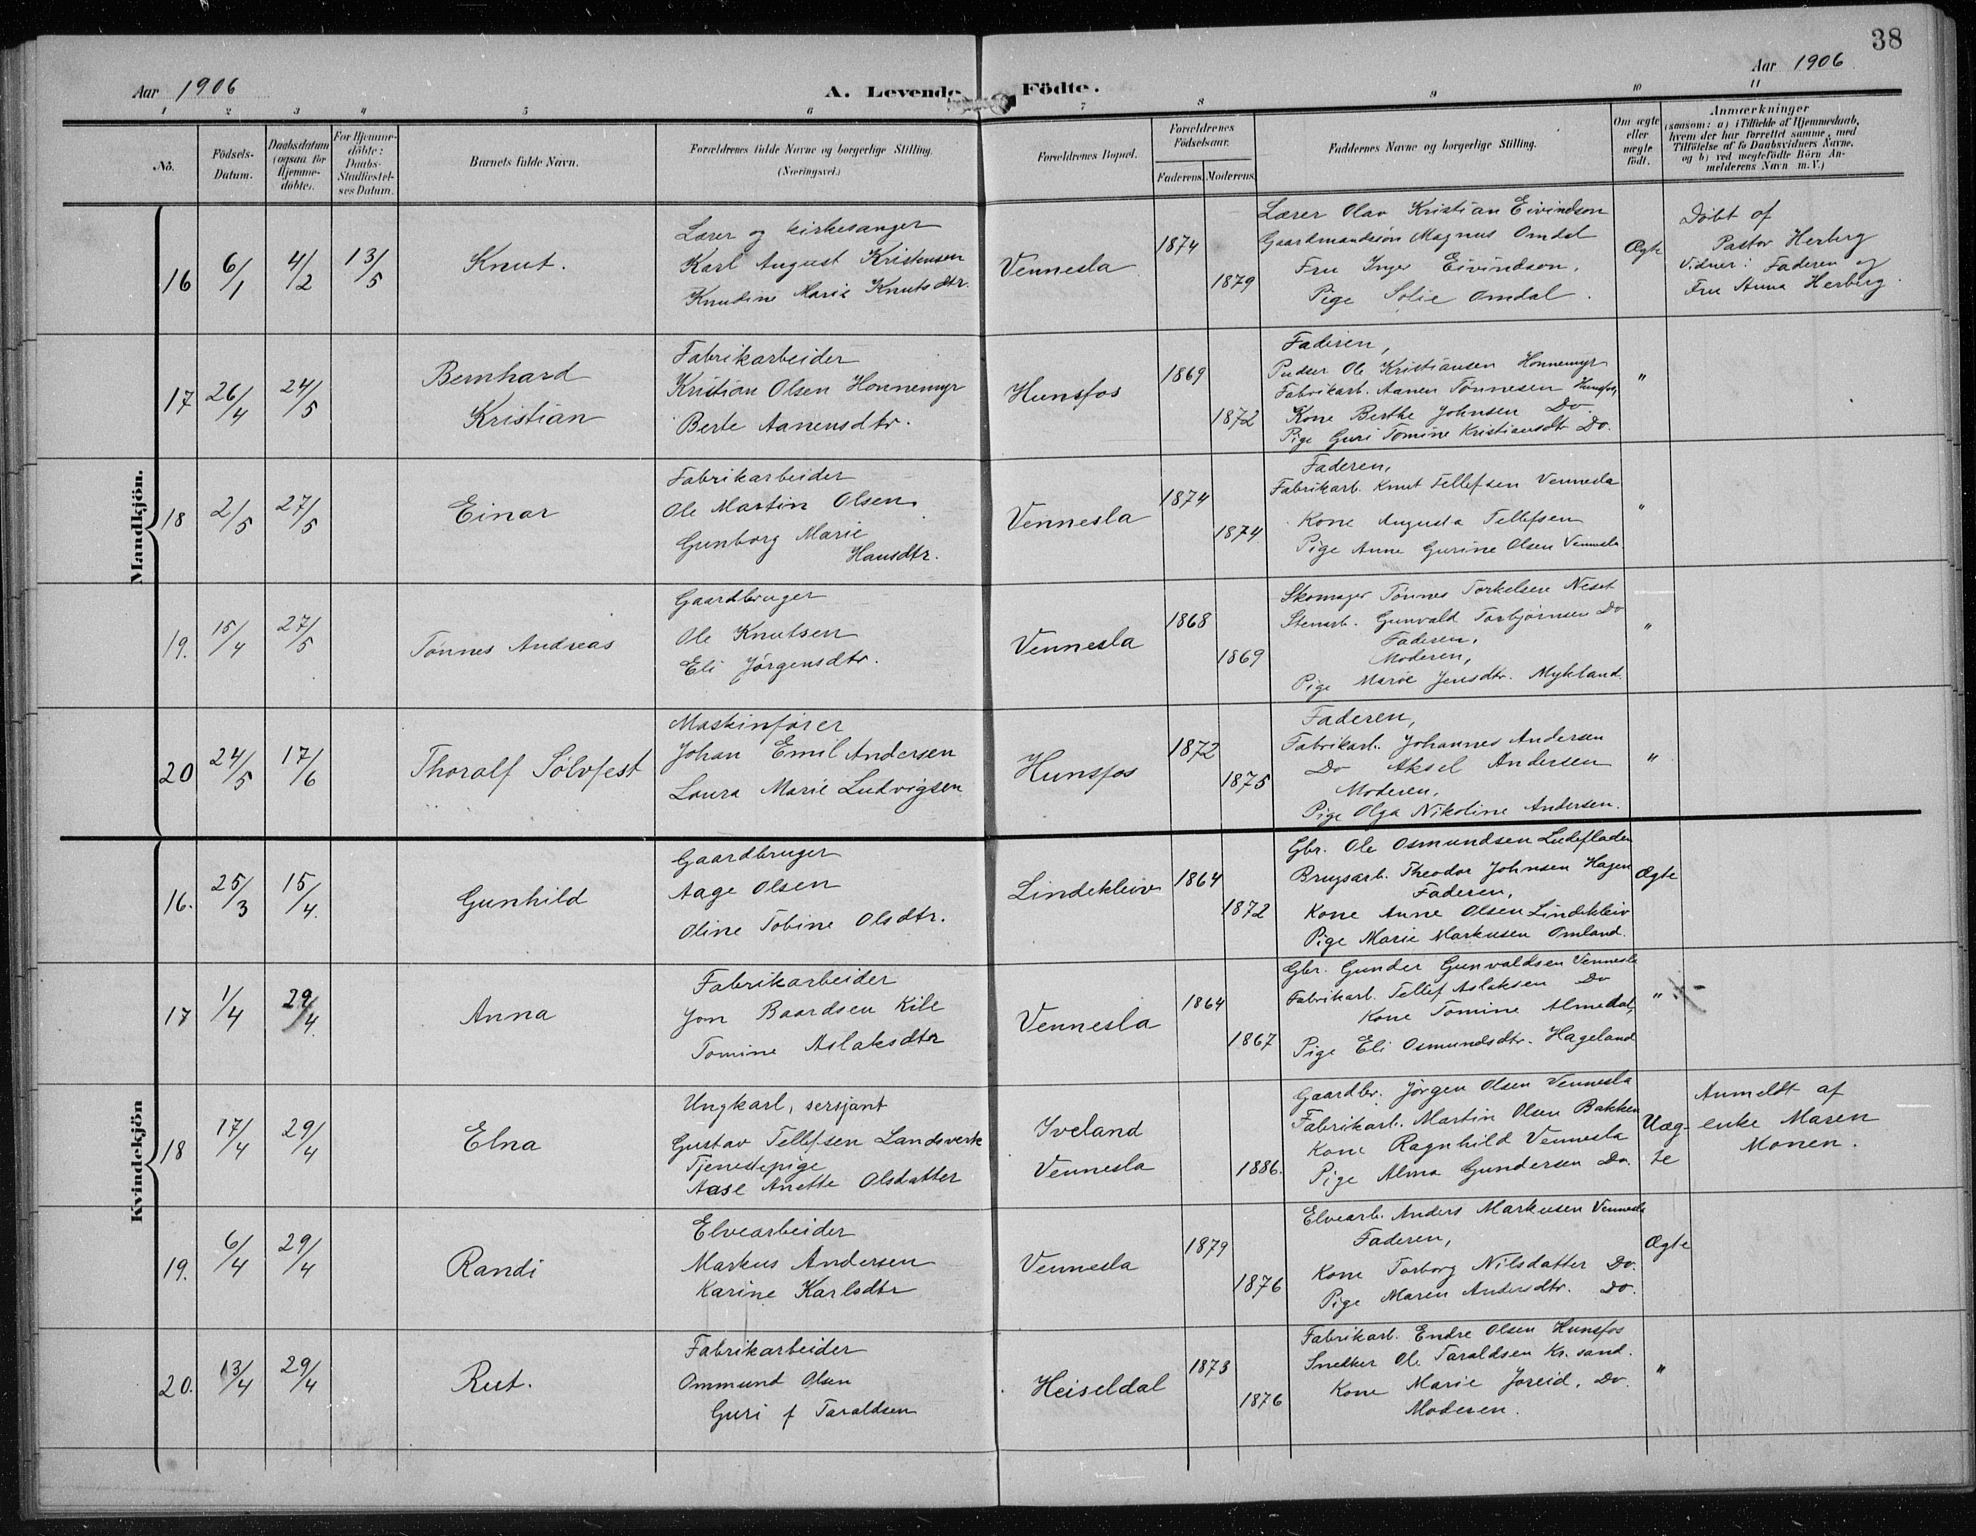 38
Aar 1906
A. Levende Födte.
Aar 1906
1 2 3 4 5 6 7 8 9 10 11
No.
Födsels-
Datum.
Daabsdatum
(ogsaa for
Hjemme-
döbte).
For Hjemme-
döbte:
Daabs-
Stadfæstel-
ses Datum.
Barnets fulde Navn.
Forældrenes fulde Navne og borgerlige Stilling.
(Næringsvei.)
Forældrenes Bopæl.
Forældrenes
Födselsaar.
Faderens. Moderens.
Faddernes Navne og borgerlige Stilling.
Om ægte
eller
uægte
født.
Anmærkninger
(saasom: a) i Tilfælde af Hjemmedaab,
hvem der har forrettet samme, med
Tilföielse af to Daabsvidners Navne,
og b) ved uægtefödte Börn An-
melderens Navn m. V.)
Mandkjön.
16
6/1
4/2
13/5
Knut.
Lærer og kirkesanger
Karl August Kristensen
Knudine Marie Knutsdtr.
Vennesla
1874
1879
Lærer Olav Kristian Eivindson
Gaardmandssøn Magnus Omdal
Fru Inger Eivindson,
Pige Sofie Omdal.
Ægte
Døbt af
Pastor Herberg
Vidner: Faderen og
Fru Anna Herberg.
17
26/4
24/5
Bernhard
Kristian
Fabrikarbeider
Kristian Olsen Honnemyr
Berte Aanensdtr.
Hunsfos
1869
1872
Faderen,
Pudser Ole Kristiansen Honnemyr
Fabrikarb. Aanen Tønnesen Hunsfos,
Kone Berthe Johnsen Do.
Pige Guri Tomine Kristiansdtr Do.
"
18
2/5
27/5
Einar
Fabrikarbeider
Ole Martin Olsen
Gunborg Marie
Hansdtr.
Vennesla
1874
1874
Faderen,
Fabrikarb. Knut Tellefsen Vennesla
Kone Augusta Tellefsen
Pige Anne Gurine Olsen Vennesla
"
19.
15/4
27/5
Tønnes Andreas
Gaardbruger
Ole Knutsen
Eli Jørgensdtr.
Vennesla
1868
1869
Skomager Tønnes Torkelsen Neset
Stenarb. Gunvald Torbjørnsen Do
Faderen,
Moderen,
Pige Marie Jensdtr. Mykland.
"
20
24/5
17/6
Thoralf Sølvfest
Maskinfører
Johan Emil Andersen
Laura Marie Ludvigsen
Hunsfos
1872
1875
Faderen,
Fabrikarb. Johannes Andersen
Do Aksel Andersen
Moderen,
Pige Olga Nikoline Andersen.
"
Kvindekjön
16.
25/3
15/4.
Gunhild
Gaardbruger
Aage Olsen
Oline Tobine Olsdtr.
Lindekleiv
1864
1872
Gbr. Ole Osmundsen Ludefladen
Brugsarb. Theodor Johnsen Hagen
Faderen,
Kone Anne Olsen Lindekleiv
Pige Marie Markusen Omland.
Ægte
17
1/4
29/4.
Anna
Fabrikarbeider
Jon Baardsen Kile
Tomine Aslaksdtr
Vennesla
1864
1867
Gbr. Gunder Gunvaldsen Vennesla
Fabrikarb. Tellef Aslaksen Do
Kone Tomine Almedal,
Pige Eli Osmundsdtr. Hageland
"
18
17/4
29/4
Elna
Ungkarl, sersjant
Gustav Tellefsen Landsverk
Tjenestepige
Aase Anette Olsdatter
Iveland
Vennesla
1886.
Gaardbr. Jørgen Olsen Vennesla
Fabrikarb. Martin Olsen Bakken
Kone Ragnhild Vennesla
Pige Alma Gundersen Do.
Uæg-
te
Anmeldt af
enke Maren
Monen.
19.
6/4
29/4
Randi
Elvearbeider
Markus Andersen
Karine Karlsdtr
Vennesla
1879
1876
Elvearb. Anders Markusen Vennesla
Faderen,
Kone Torborg Nilsdatter Do.
Pige Maren Andersdtr. Do.
Ægte
20.
13/4
29/4
Rut.
Fabrikarbeider
Ommund Olsen
Guri f Taraldsen
Heiseldal
1873
1876
Fabrikarb. Endre Olsen Hunsfos
Snedker Ole Taraldsen Kr.sand.
Kone Marie Joreid, Do.
Moderen.
"